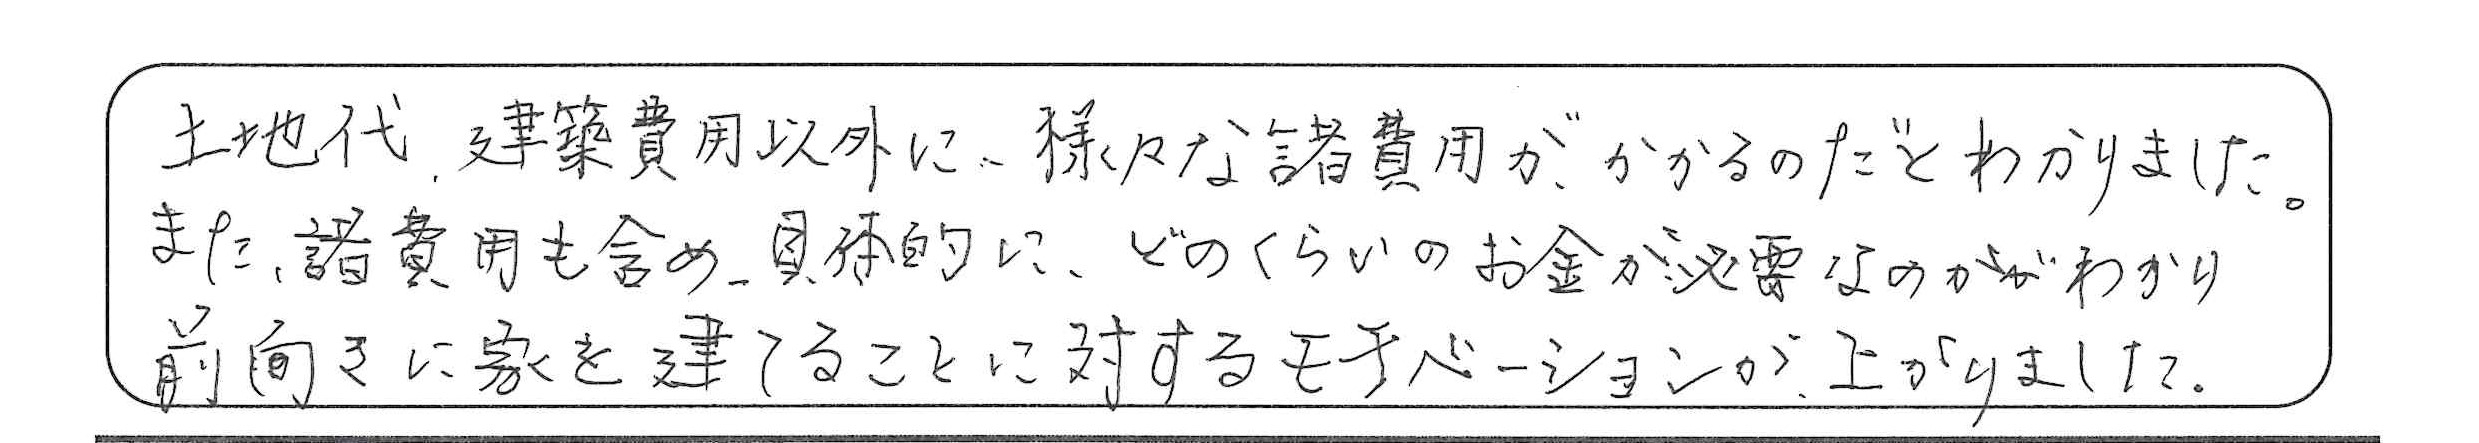 土地代、建築費用以外に、様々な諸費用が、かかるのだとわかりました。
また、諸費用も含め、具体的に、どのくらいのお金が必要なのかがわかり
前向きに家を建てることに対するモチベーションが、上がりました。